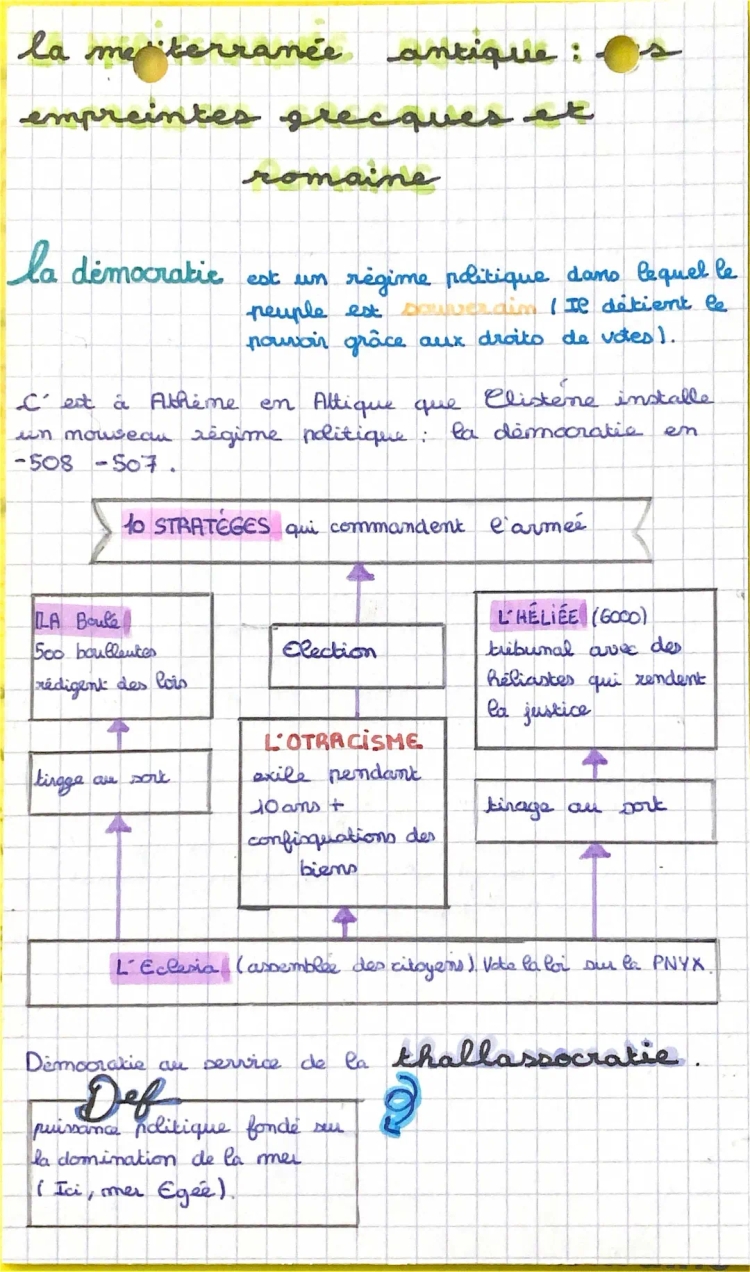 la mediterranée antique : les
empreintes grecques et
romaine
la démocratie est un régime politique dans lequel le
peuple est souverain ( Il détient le
pouvoir grâce aux droits de votes).
C' est à Athème en Attique que Clistène installe
un nouveau régime politique : la démocratie en
-508 -507.
10 STRATÉGES qui commandent l'armeé
LA Boulé
500 boulleutes
rédigent des lois
Election
L'HÉLIÉE (6000)
tribunal avec des
héliastes qui rendent
la justice
tirage au sort
L'OTRACISME
exile pendant
10 ans +
confisquations des
biens
tirage au sort
L'Eclesia (assemblée des citoyens). Vote la loi sur la PNYX.
Démocratie au service de la thallassocratie.
Def
puissance politique fondé sur
la domination de la mer
( Ici, mer Egée).